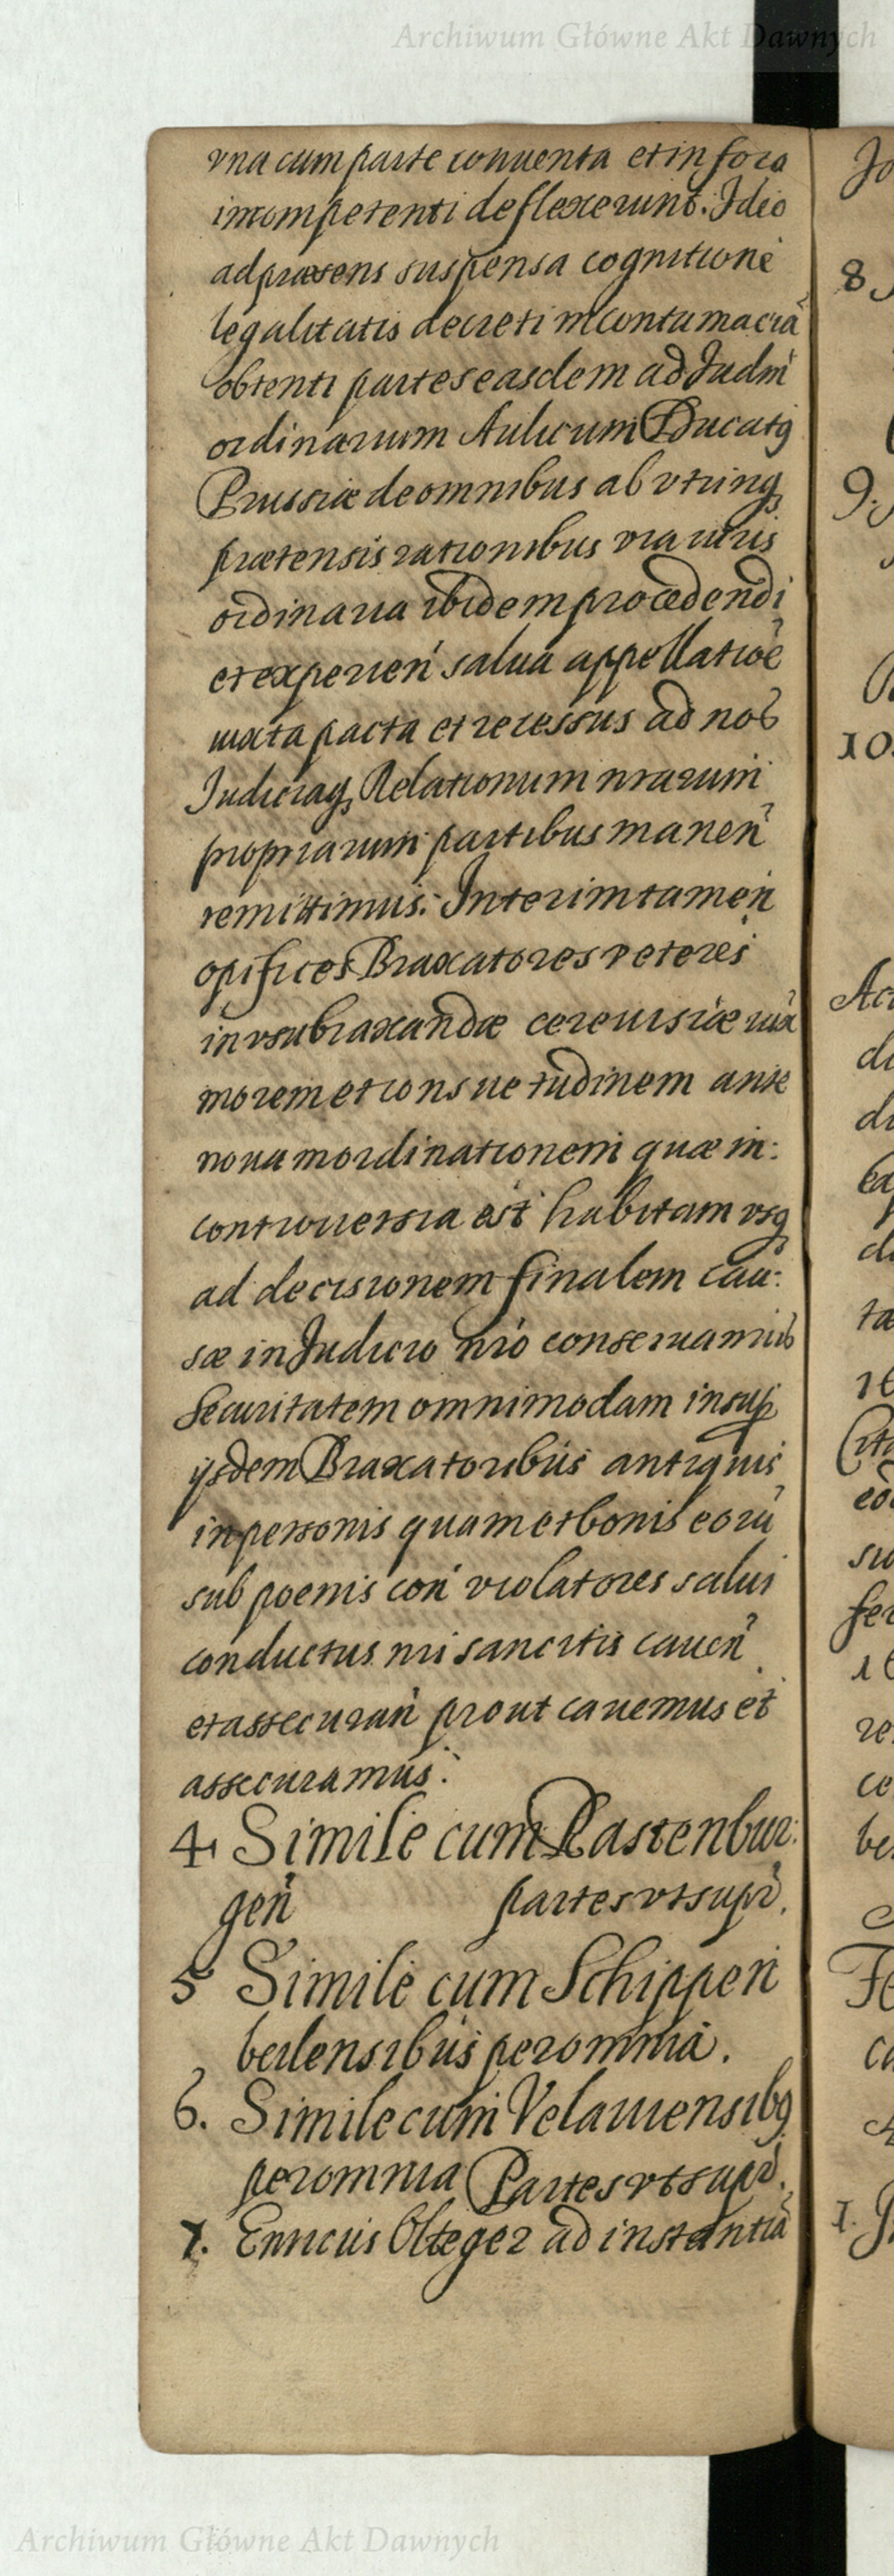 Archiwum Główne Akt Dawnych
vna cum parte conuenta et in foro
incompetenti deflexerunt. Ideo
ad præsens suspensa cognitione
legalitatis decreti in contumaciã
obtenti partes easdem ad Judm
ordinarium Aulicum Ducatq
Prussiæ de omnibus ab vtrinq
prætensis rationibus via iuris
ordinaria ibidem procedendi
et experien salua appellatiõe
iuxta pacta et recessus ad nos
Judiciaq Relationum nrarum
propriarum partibus manen
remittimus. Interim tamen
opifices Braxatores veteres
in vsu braxandæ cereuisiæ iux
morem et consuetudinem ante
nouam ordinationem quæ in:
controuersia est habitam vsq
ad decisionem finalem cau:
sæ in Judicio nro conseruamus
Securitatem omnimodam insup
ijsdem Braxatoribus antiquis
in personis quam et bonis eorũ
sub poenis con violatores salui
conductus nri sancitis cauen
et assecuran prout cauemus et
assecuramus.
4. Simile cum Rastenbur:
gen partes vt supr.
5 Simile cum Schippen
beilensibus per omnia.
6. Simile cum Velauiensibq
per omnia Partes vt supr.
7. Enricus Olteger ad instantiã
Archiwum Główne Akt Dawnych